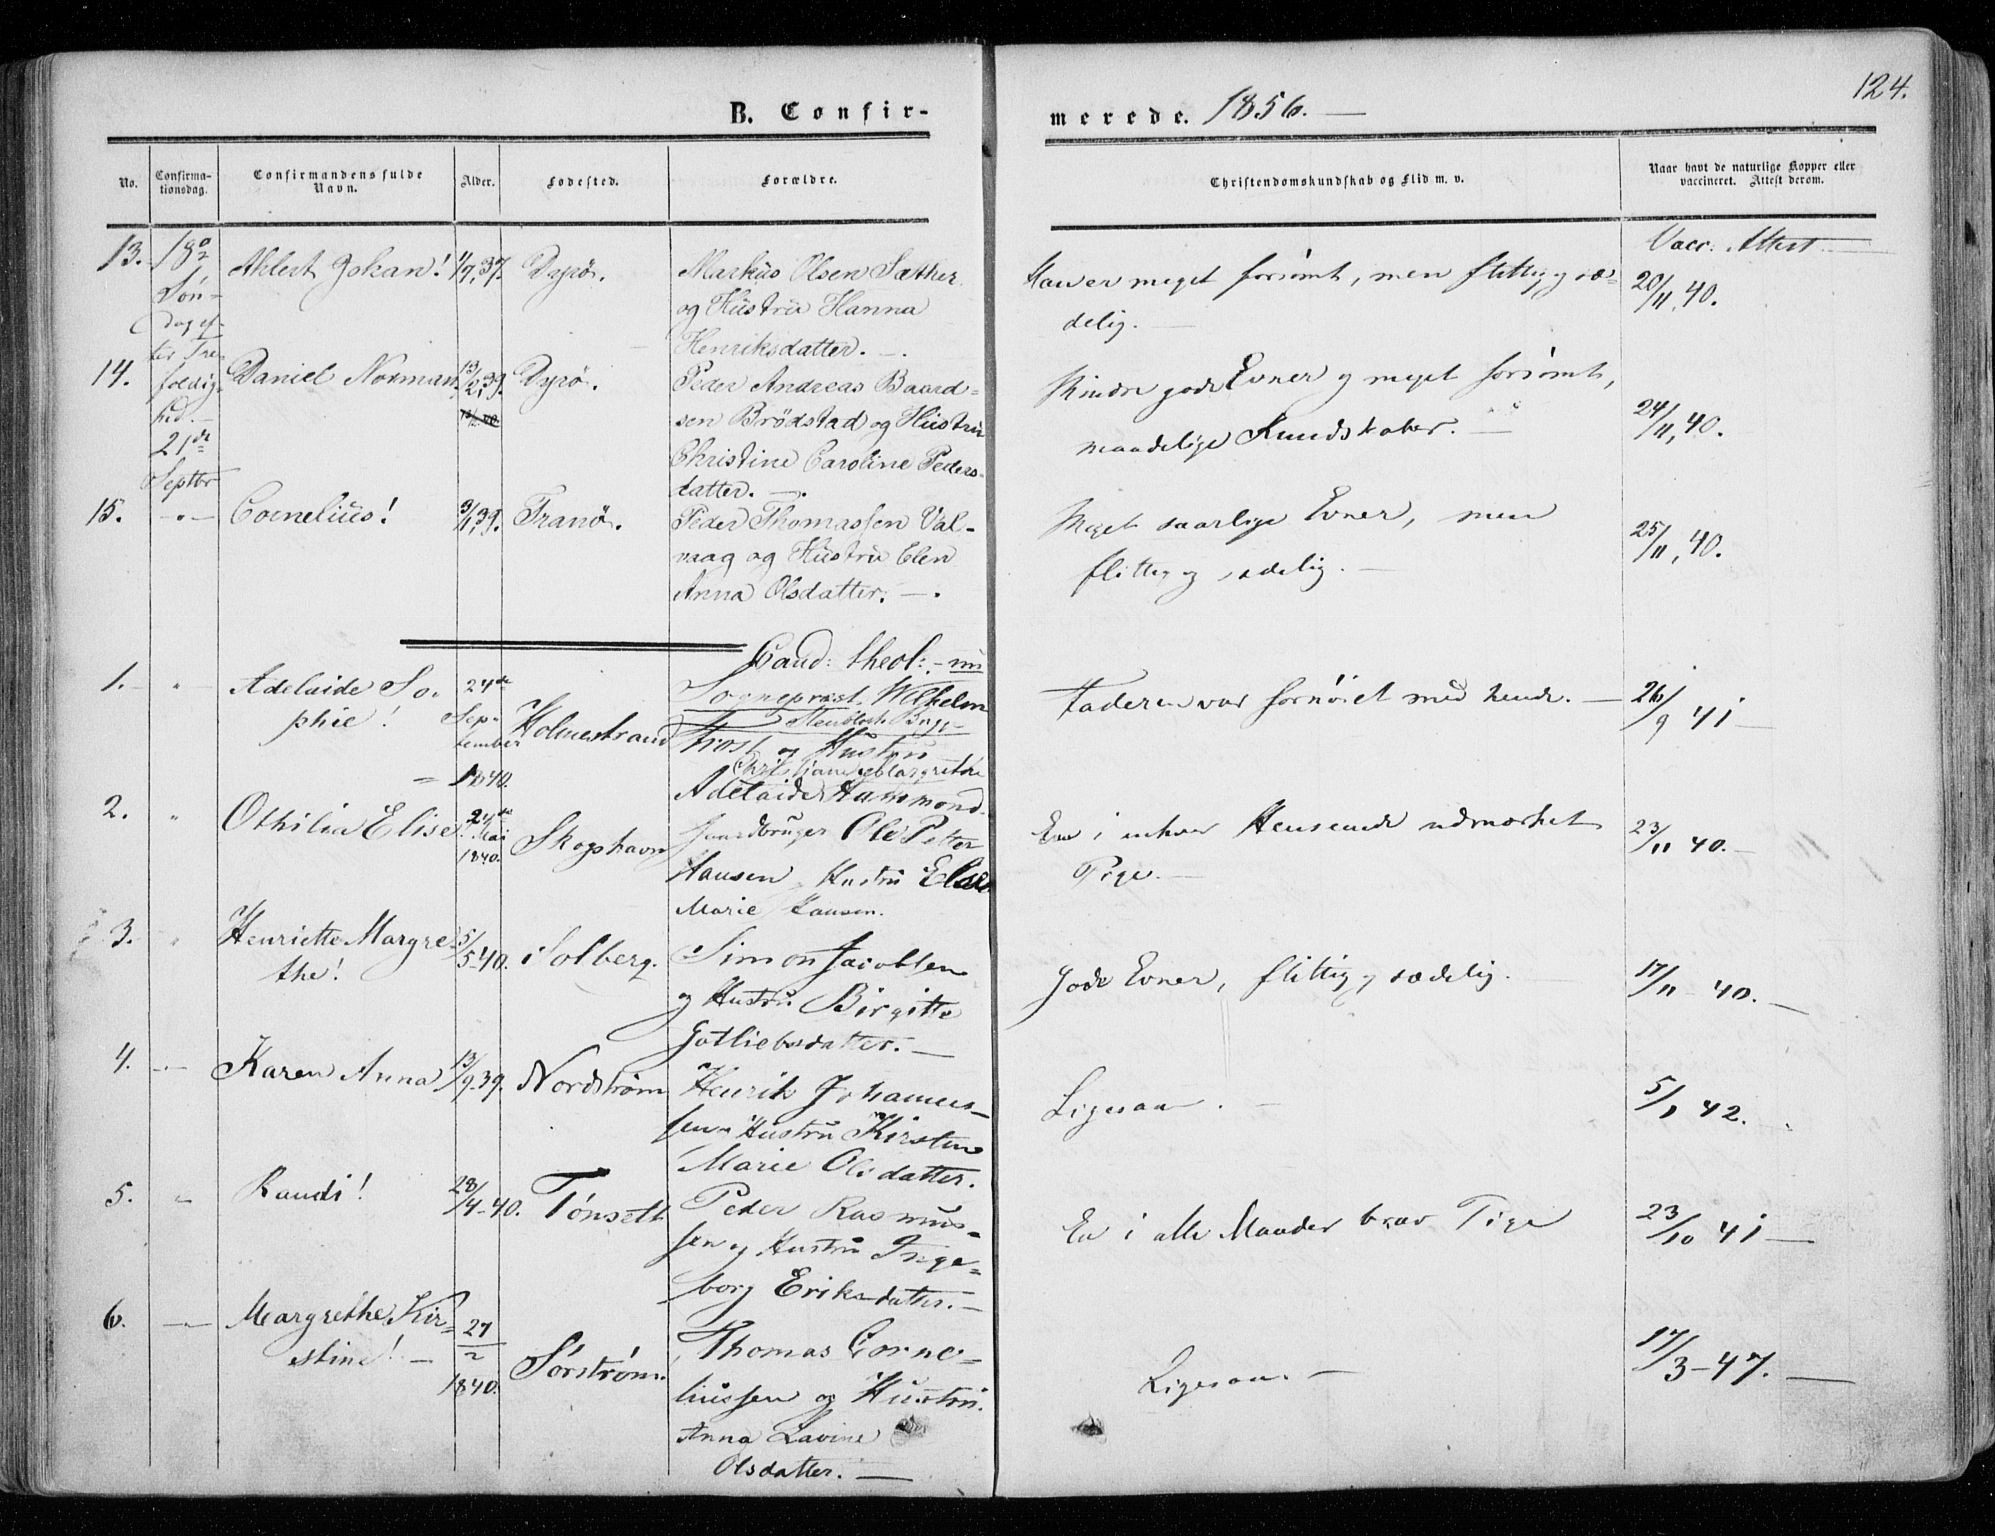 124.
B. Confirmerede. 1856. —
No.
Confirmationsdag.
Confirmandens fulde Navn.
Alder.
Fødested.
Forældre.
Christendomskundskab og Flid m. v.
Naar havt de naturlige Kopper eller vaccineret. Attest derom.
Vacc. Attest —
13. 18de Søn- Ahlert Johan! 1/7,37. Dyrö. Markus Olsen Sæther
dag ef- og Hustru Hanna
ter Tre- Henriksdatter. —.
Han er meget forsømt, men flittig og sæ-
delig. —
20/11,40.
14. foldig- Daniel Norman. 13/2,39. Dyrö. Peder Andreas Baard-
hed. — sen Brödstad og Hustru
21de Christine Caroline Peders-
Septbr datter. —.
Mindre gode Evner og meget forsømt,
maadelige Kundskaber. —
24/11,40.
15. —"— Cornelius! 3/1,39. Tranö. Peder Thomassen Val-
vaag og Hustru Elen
Anna Olsdatter. —.
Meget saarlige Evner, men
flittig og sædelig. —
25/11,40.
Cand: theol: — nu
1. — " Adelaide So- 24de Sogneprest Wilhelm
phie! Sep- Holmestrand
tember Frost og Hustru
Christiane Margrethe
1840. Adelaide Hammond.
Faderen var fornøiet med hende. —
26/9 41 —
2. " Othilia Elise. 24de Gaardbruger Ole Petter
Mai Skogshavn Hansen, Hustru Else
1840. Marie Hansen.
En i enhver Henseende udmærket
Pige. —
23/11 40. —
3. " Henriette Margre- 5/5-40. Solberg. Simon Jacobsen
the! og Hustru Birgitte
Gotliebsdatter. —
Gode Evner, flittig og sædelig.
17/11-40. —
4. —"— Karen Anna 13/9-39. Nordstrøm Henrik Johannes-
sen og Hustru Kirsten
Marie Olsdatter.
Ligesaa. —
5/1 42.
5. " Randi! 28/4-40. Tönsett Peder Rasmus-
sen og Hustru Inge-
borg Eriksdatter. —
En i alle Maader brav Pige
23/10 41 —
6. —"— Margrethe Kir- 27/2 Sørstrøm. Thomas Corne-
stine! — 1840. liussen og Hustru.
Anna Lavine
Olsdatter. —
Ligesaa. —
17/3-47. —